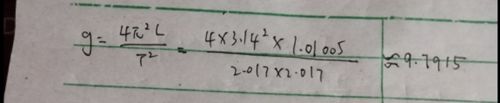 g = 4π²L / T² = 4×3.14²×1.01005 / 2.017×2.017 ≈ 9.7915